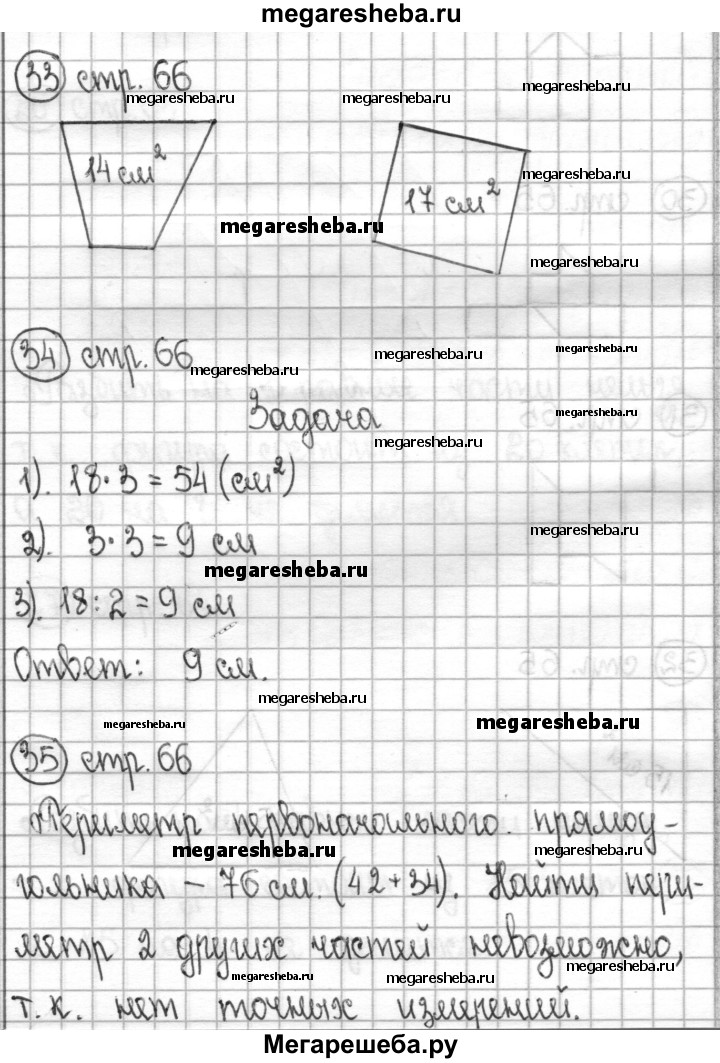 megaresheba.ru
33 стр. 66
megaresheba.ru megaresheba.ru megaresheba.ru
14 см² 17 см² megaresheba.ru
megaresheba.ru
megaresheba.ru
34 стр. 66
megaresheba.ru megaresheba.ru megaresheba.ru
Задача
megaresheba.ru megaresheba.ru
1). 18·3=54 (см²)
megaresheba.ru
2). 3·3=9 см
megaresheba.ru
3). 18:2=9 см
Ответ: 9 см.
megaresheba.ru
megaresheba.ru megaresheba.ru
35 стр. 66
Периметр первоначального прямоу-
megaresheba.ru megaresheba.ru
гольника – 76 см. (42+34). Найти пери-
метр 2 других частей невозможно,
megaresheba.ru megaresheba.ru megaresheba.ru
т.к. нет точных измерений.
Мегарешеба.ру